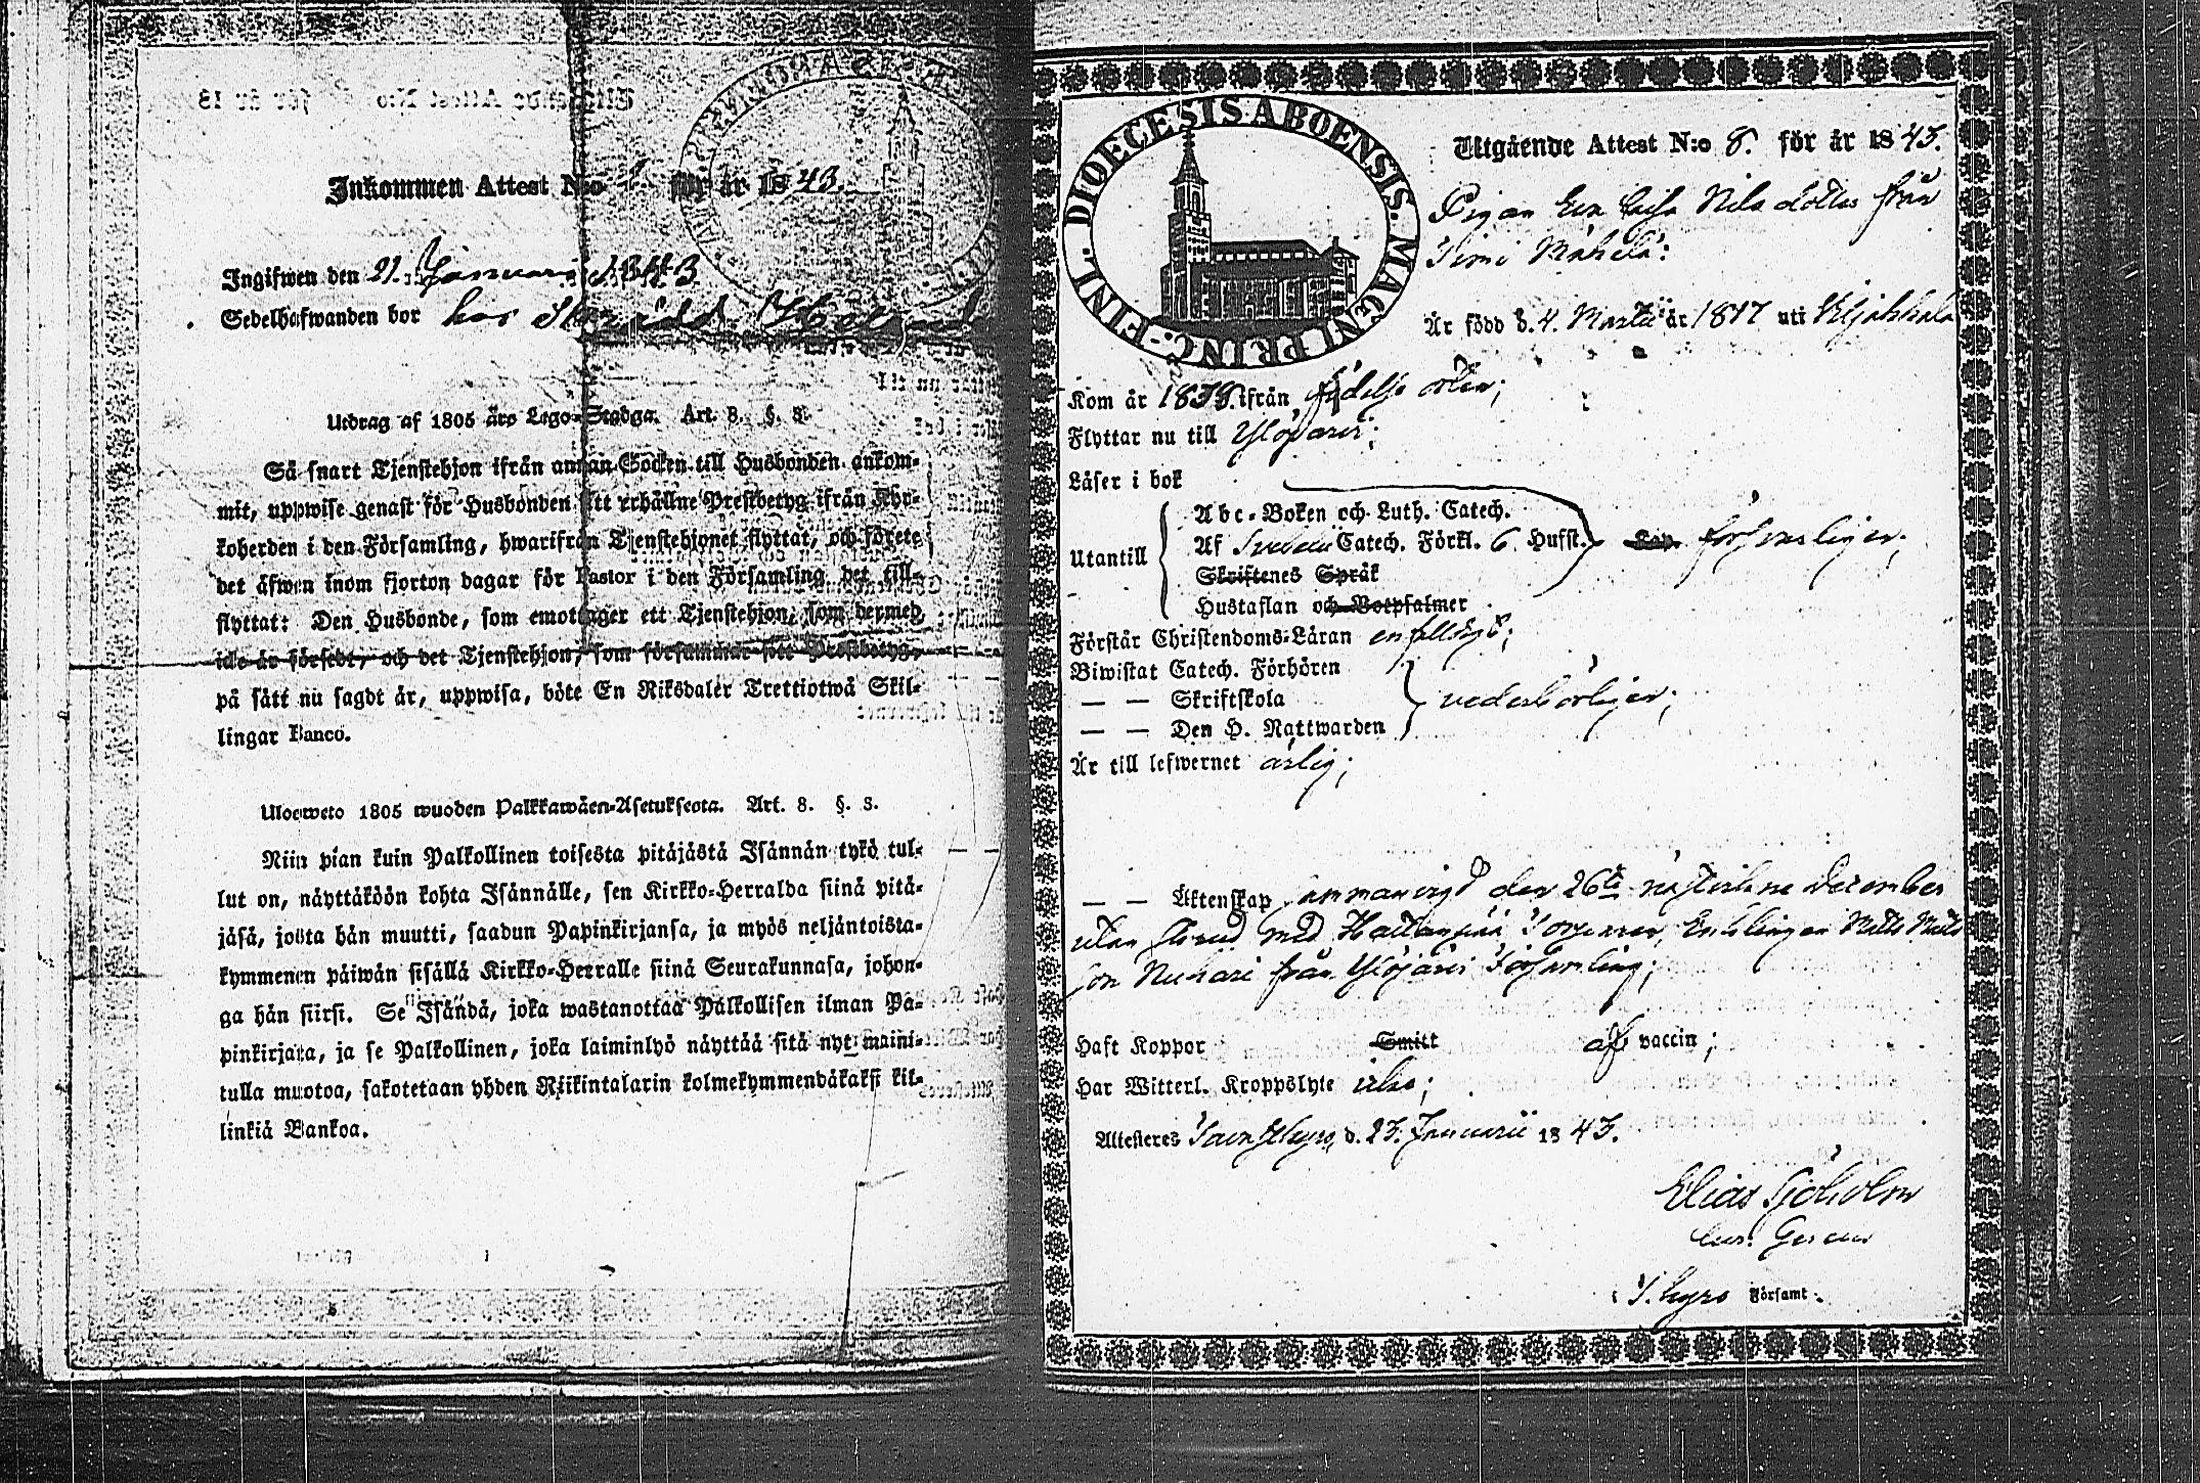 Inkommen Attest N:o 1 för år 1843.
Ingifwen den 21. Januari 1843
Sedelhafwanden bor hos
Utdrag af 1805 års Lego-Stadga. Art. 8. §. 3.
Så snart Tjenstehjon ifrån annan Socken till Husbonden ankom-
mit, uppwise genast för Husbonden sitt erhållne Prestbetyg ifrån Kyr-
koherden i den Församling, hwarifrån Tjenstehjonet flyttat, och förete
det äfwen inom fjorton dagar för Pastor i den Församling det till-
flyttat: Den Husbonde, som emottager ett Tjenstehjon, som dermed
icke är försedt, och det Tjenstehjon, som försummar sitt Prestbetyg,
på sätt nu sagdt är, uppwisa, böte En Riksdaler Trettiotwå Skil-
lingar Banco.
Ulosweto 1805 wuoden Palkkawäen-Asetuksesta. Art. 8. §. 3.
Niin pian kuin Palkollinen toisesta pitäjästä Isännän tykö tul-
lut on, näyttäköön kohta Isännälle, sen Kirkko-Herralda siinä pitä-
jäsä, josta hän muutti, saadun Papinkirjansa, ja myös neljäntoista-
kymmenen päiwän sisällä Kirkko-Herralle siinä Seurakunnasa, johon-
ga hän siirsi. Se Isändä, joka wastanottaa Palkollisen ilman Pa-
pinkirjata, ja se Palkollinen, joka laiminlyö näyttää sitä nyt maini-
tulla muotoa, sakotetaan yhden Riikintalarin kolmekymmendäkaksi kil-
linkiä Bankoa.
DIOECESIS ABOENSIS. MAGNI PRINC. FINL.
Utgående Attest N:o 8. för år 1843.
Pigan Eva Caisa Nils dotter från
Timi Mäkelä:
Är född d. 4. Martii år 1817 uti Kyrkskala
Kom år 1838. ifrån födelse orten;
Flyttar nu till Ylöjärvi;
Läser i bok
Utantill
Abc-Boken och Luth. Catech.
Af Svebelii Catech. Förkl. 6 Hufst. Cap. försvarligen;
Skriftenes Språk
Hustaflan och Botpsalmer
Förstår Christendoms-Läran enfalldigt;
Biwistat Catech. Förhören
— — Skriftskola vederbörligen;
— — Den H. Nattwarden
Är till lefwernet ärlig;
— — Äktenskap sammanvigd den 26te nästvikne December
utan med Torparen, Enklingen Matts Matts
son från Ylöjärvi Församling;
Haft Koppor Smitt af vaccin;
Har Witterl. Kroppslyte icke;
Attesteras Tavastkyro, d. 23. Januarii 1843.
Elias Sjöholm
Cur. Gerens
i T. kyro Församl.